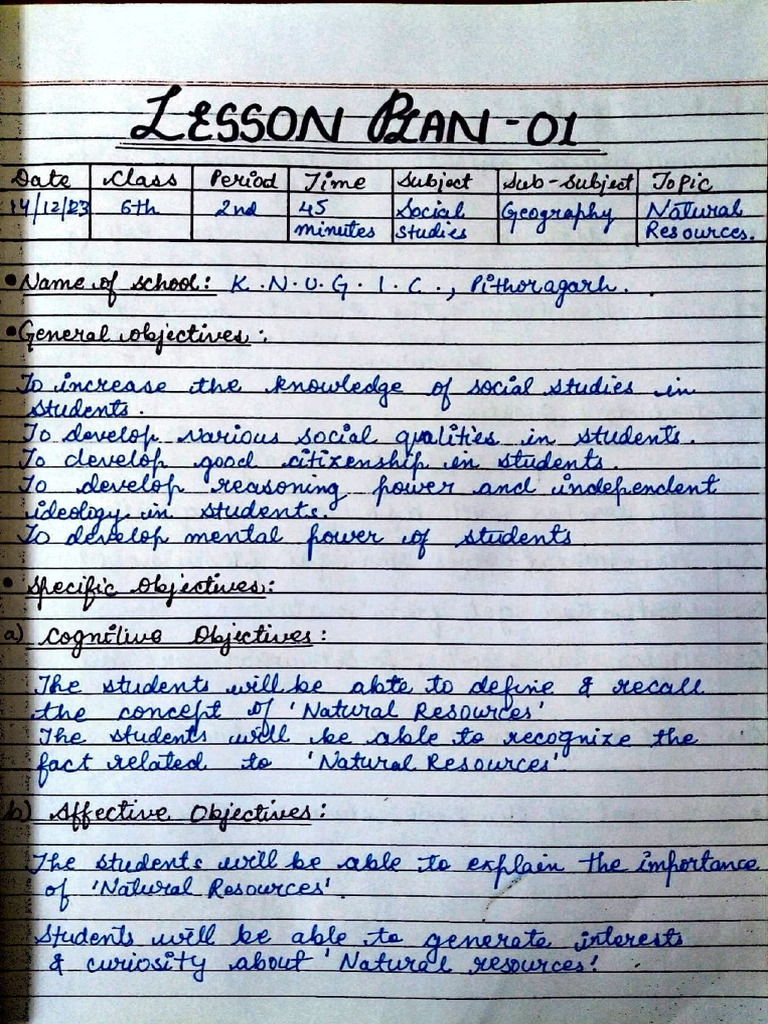 LESSON PLAN - 01
Date Class Period Time Subject Sub-Subject Topic
14/12/23 6th 2nd 45 Social Geography Natural
minutes Studies Resources.
• Name of school: K.N.U.G.I.C., Pithoragarh.
• General objectives:
To increase the knowledge of social studies in
students.
To develop various social qualities in students.
To develop good citizenship in students.
To develop reasoning power and independent
ideology in students.
To develop mental power of students
• Specific Objectives:
a) Cognitive Objectives:
The students will be able to define & recall
the concept of 'Natural Resources'
The students will be able to recognize the
fact related to 'Natural Resources'
b) Affective Objectives:
The students will be able to explain the importance
of 'Natural Resources'.
Students will be able to generate interests
& curiosity about 'Natural resources'.